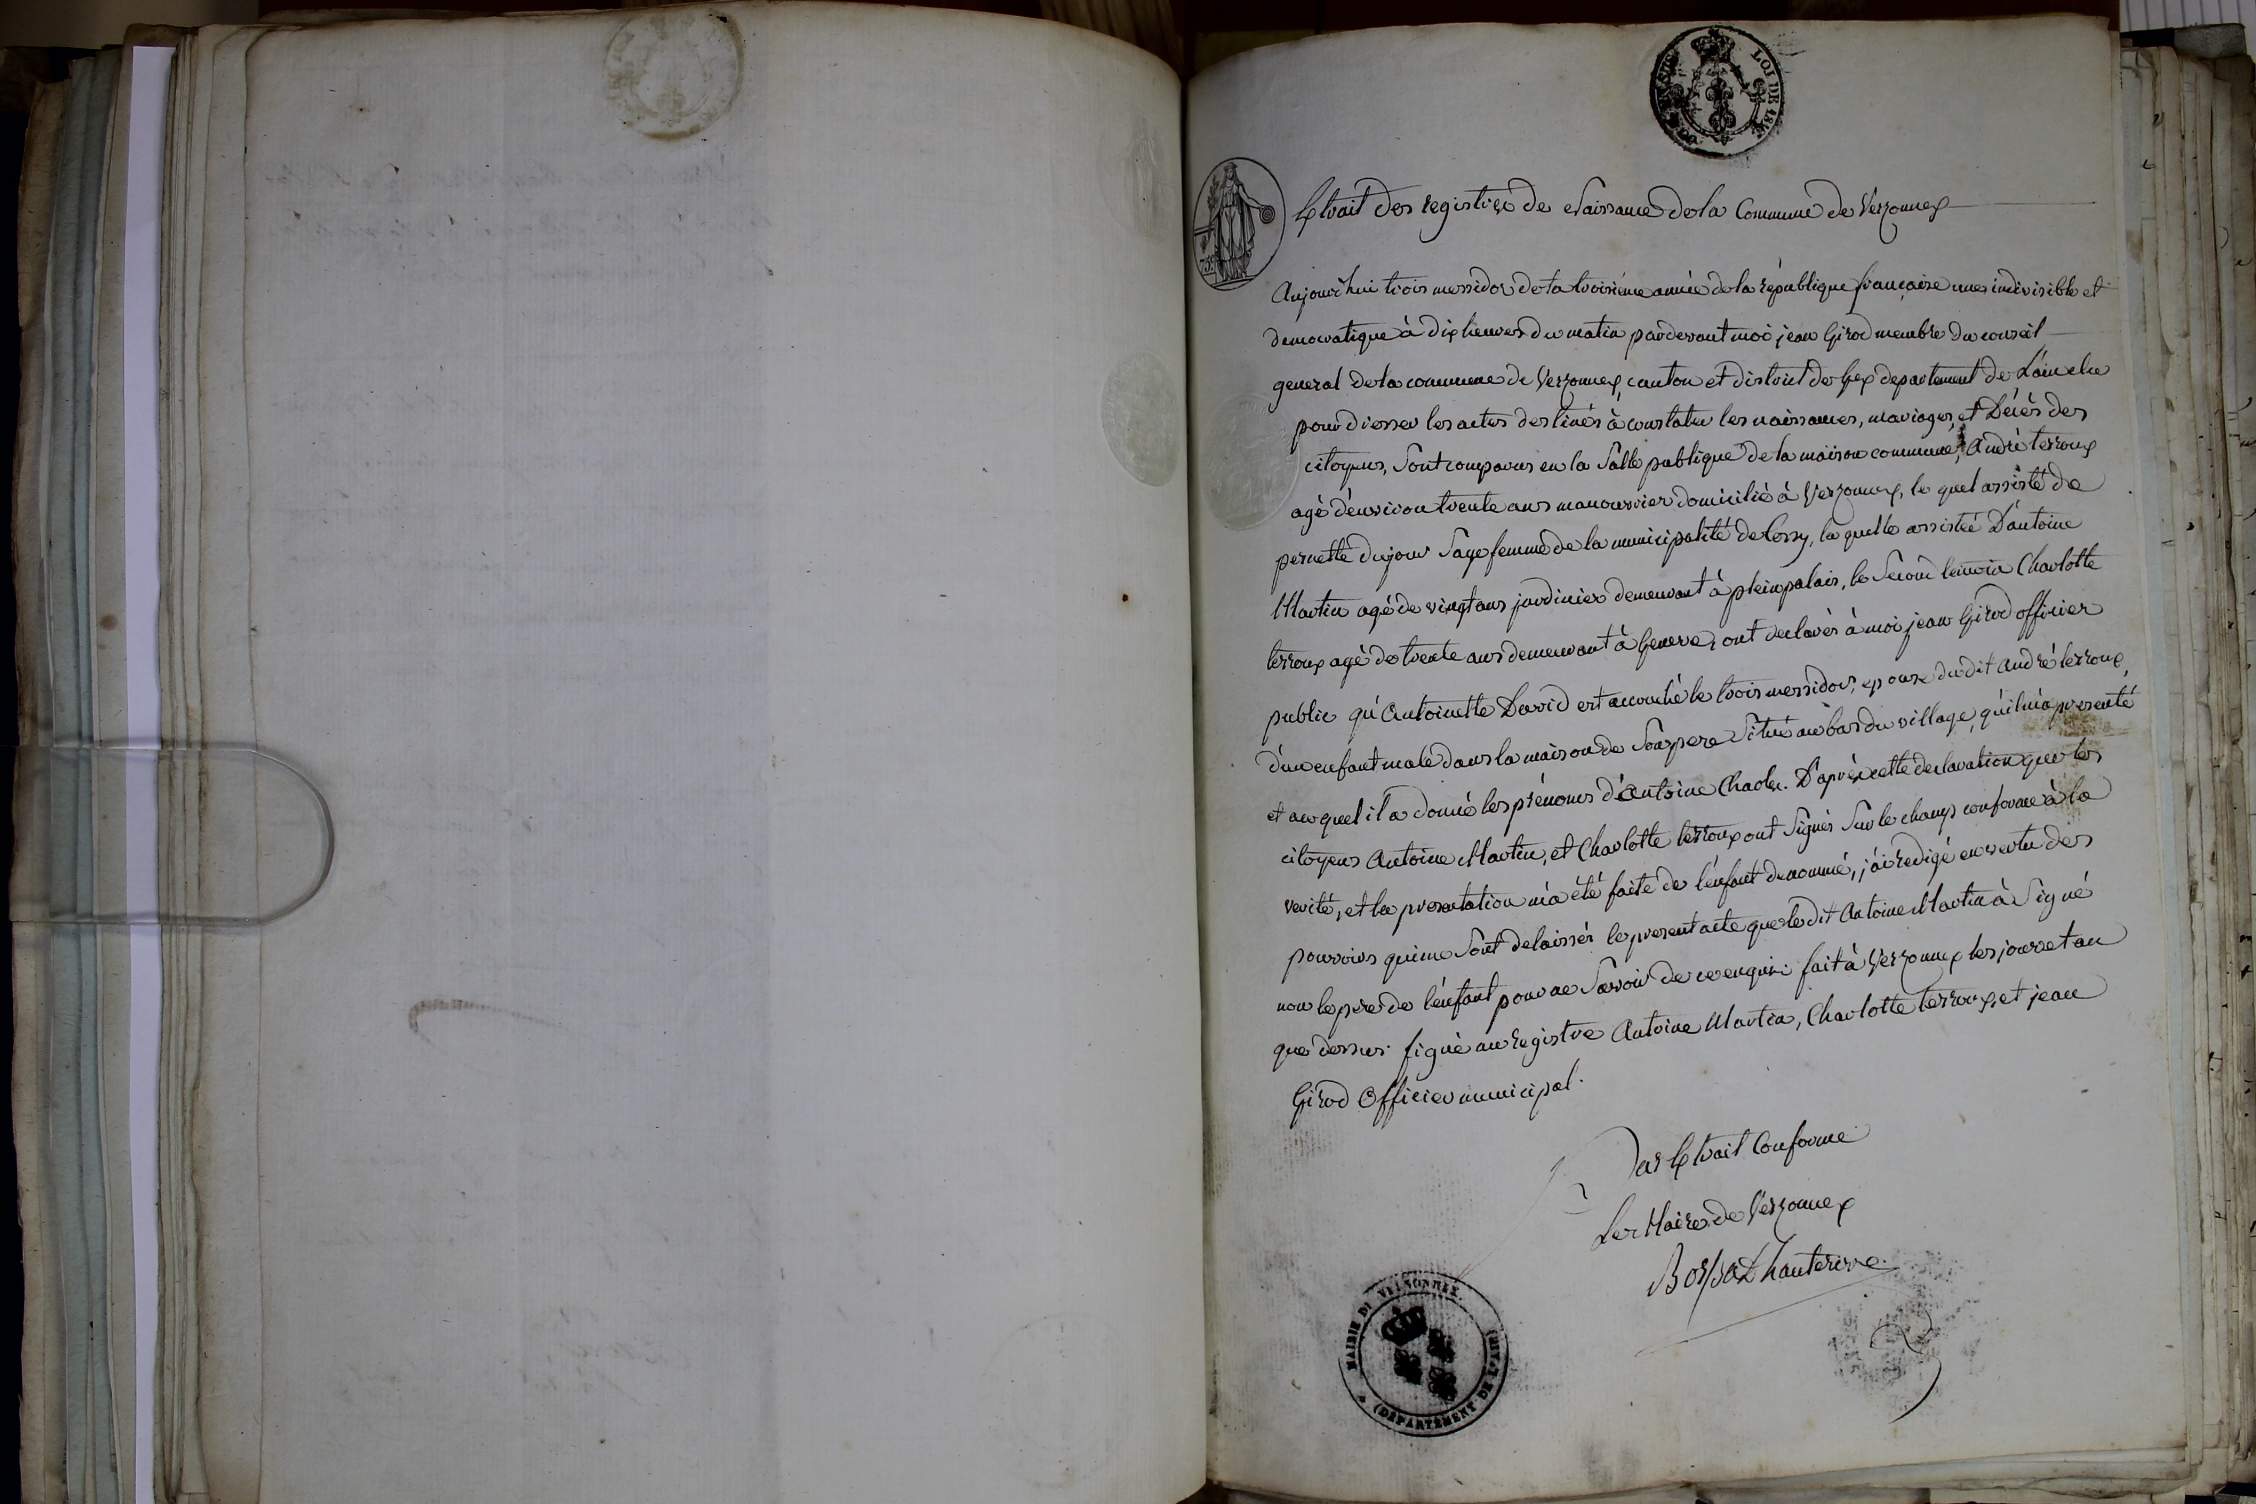 LOI DE 18
Extrait des registres de Naissance de la Commune de Versonnex
Aujourd'hui trois messidor de la troisieme année de la république française une indivisible et
democratique à dix heures du matin pardevant moi jean Girod membre du conseil
general de la commune de Versonnex, canton et district de Gex departement de L'ain elu
pour dresser les actes destinés à constater les naissances, mariages, et Décès des
citoyens, Sont comparus en la Salle publique de la maison commune, André terroux
agé d'environ trente ans manouvrier domicilié à Versonnex, le quel assisté de
pernette dujour Sage femme de la municipalité de Cessy, la quelle assistée D'antoine
Martin agé de vingt ans jardinier demeurant à pleinpalais, le Second temoin Charlotte
terroux agé de trente ans demeurant à Geneve, ont declarés à moi jean Girod officier
public qu'Antoinette David est accouché le trois messidor, epouse du dit André terroux,
d'un enfant male dans la maison de Son pere Situé au bas du village, qu'il m'a presenté
et au quel il a donné les prénoms d'Antoine Charle. D'après cette declaration que les
citoyens Antoine Martin, et Charlotte terroux ont Signés Sur le champ conforme à la
verité, et la presentation m'a été faite de l'enfant denommé, j'ai redigé en vertu des
pouvoirs qui me Sont delaissés le present acte que le dit Antoine Martin à Signé
non le pere de l'enfant pour ne Savoir de ce enquis. fait à Versonnex les jour et an
que dessus. Signé au registre Antoine Martin, Charlotte terroux, et jean
Girod Officier municipal.
Par Extrait Conforme
Le Maire de Versonnex
MAIRIE DE VERSONNEX.
(DÉPARTEMENT DE L'AIN)